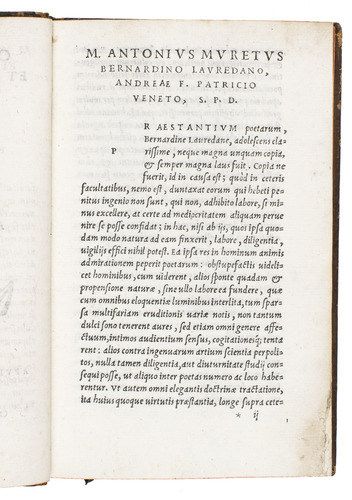 M. ANTONIVS MVRETVS
BERNARDINO LAVREDANO,
ANDREAE F. PATRICIO
VENETO, S. P. D.
P RAESTANTIVM poëtarum,
Bernardine Lauredane, adolescens clarissime,
neque magna unquam copia,
& semper magna laus fuit. Copia ne
fuerit, id in causa est; quòd in ceteris
facultatibus, nemo est, duntaxat eorum qui hebeti penitus
ingenio non sunt, qui non, adhibito labore, si minus
excellere, at certe ad mediocritatem aliquam peruenire
se posse confidat; in hac, nisi ab ijs, quos ipsa quodam
modo natura ad eam finxerit, labore, diligentia,
vigilijs effici nihil potest. Ea ipsa res in hominum animis
admirationem peperit poëtarum: obstupefactis uidelicet
hominibus, cum uiderent, alios sponte quadam &
propensione naturæ, sine ullo labore ea fundere, quæ
cum omnibus eloquentiæ luminibus interlita, tum sparsa
multifariam eruditionis uariæ notis, non tantum
dulci sono tenerent aures, sed etiam omni genere affectuum,
intimos audientium sensus, cogitationesq; tentarent:
alios contra ingenuarum artium scientia perpolitos,
nulla tamen diligentia, aut diuturnitate studij consequi
posse, ut aliquo inter poëtas numero ac loco haberentur.
Vt autem omni elegantis doctrinæ tractatione,
ita huius quoque virtutis præstantia, longe supra cete-
* ij